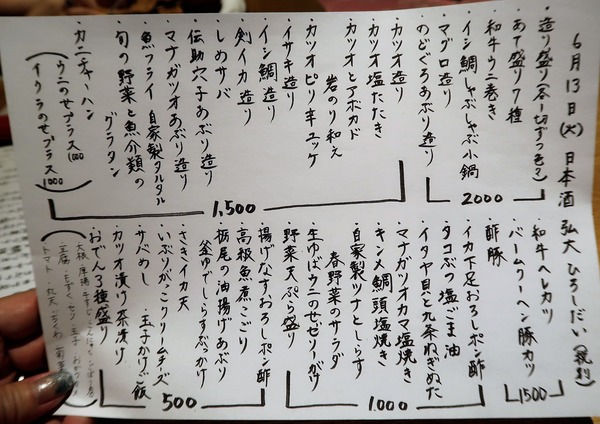 6月13日(火) 日本酒 弘大 ひろしだい (税別)
・造り盛り(各一切ずつ色々)
・あて盛り7種
・和牛ウニ巻き
・イシ鯛しゃぶしゃぶ小鍋
・マグロ造り
・のどぐろあぶり造り
2000
・カツオ造り
・カツオ塩たたき
・カツオとアボカド
岩のり和え
・カツオピリ辛ユッケ
・イサキ造り
・イシ鯛造り
・剣イカ造り
・しめサバ
・伝助穴子あぶり造り
・マナガツオあぶり造り
・魚フライ 自家製タルタル
・旬の野菜と魚介類の
グラタン
・カニチャーハン
(ウニのせプラス1000
イクラのせプラス1000)
1,500
・和牛ヘレカツ
・バームクーヘン豚カツ
1500
・酢豚
・イカ下足おろしポン酢
・タコぶつ塩ごま油
・イタヤ貝と九条ねぎぬた
・マナガツオカマ塩焼き
・キンメ鯛頭塩焼き
・自家製ツナとしらす
春野菜のサラダ
・生ゆばウニのせゼリーがけ
・野菜天ぷら盛り
1.000
・揚げなすおろしポン酢
・高級魚煮こごり
・栃尾の油揚げあぶり
釜ゆでしらすぶっかけ
・ささイカ天
・いぶりがっこクリームチーズ
・サバめし ・玉子かけご飯
・カツオ漬け茶漬け
・おでん3種盛り
500
トマト・丸天・ちくわ